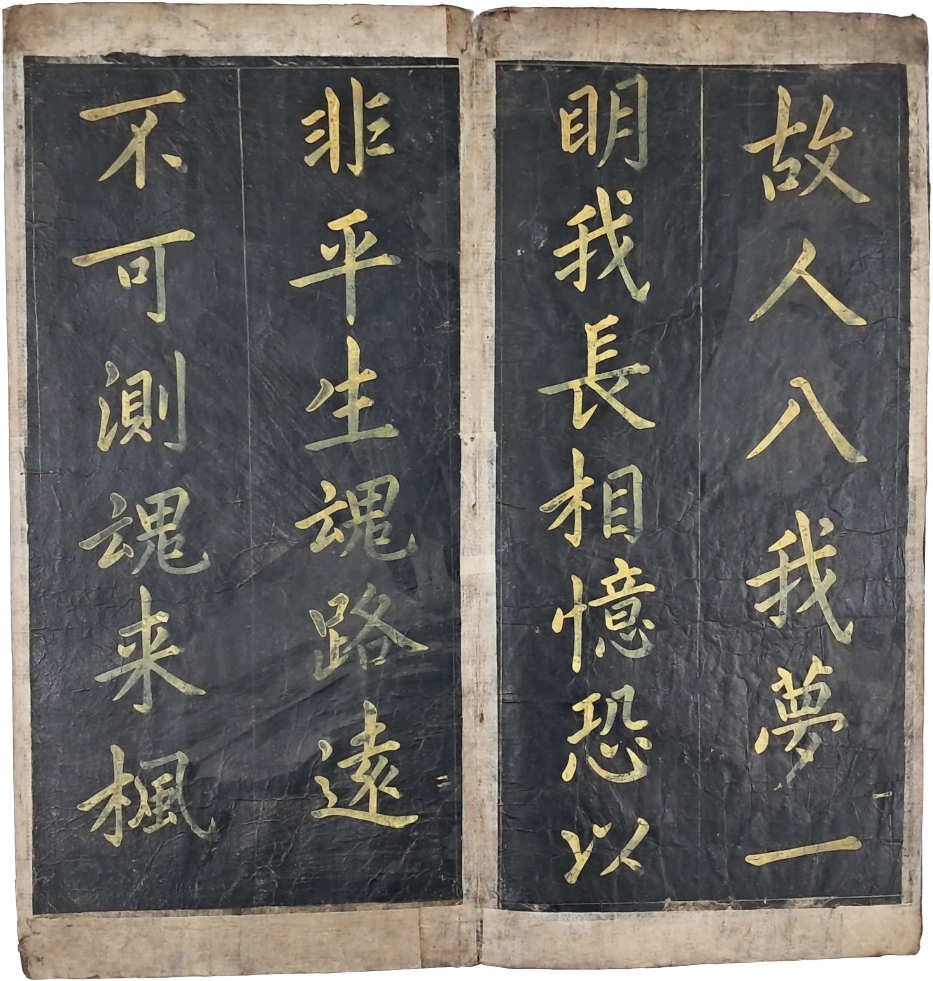 故人入我夢一
一
眀我長相憶恐以
二
非平生魂路遠
不可測魂来楓